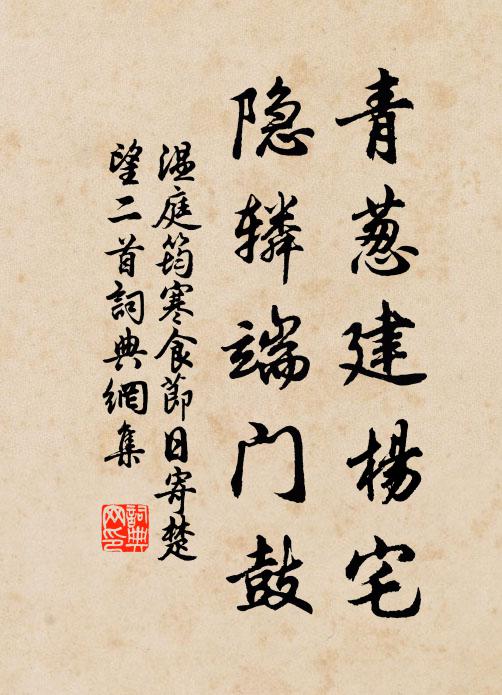 青葱建楊宅
隐辚端门鼓
温庭筠寒食節日寄楚
望二首詞典網集
詞典
网印